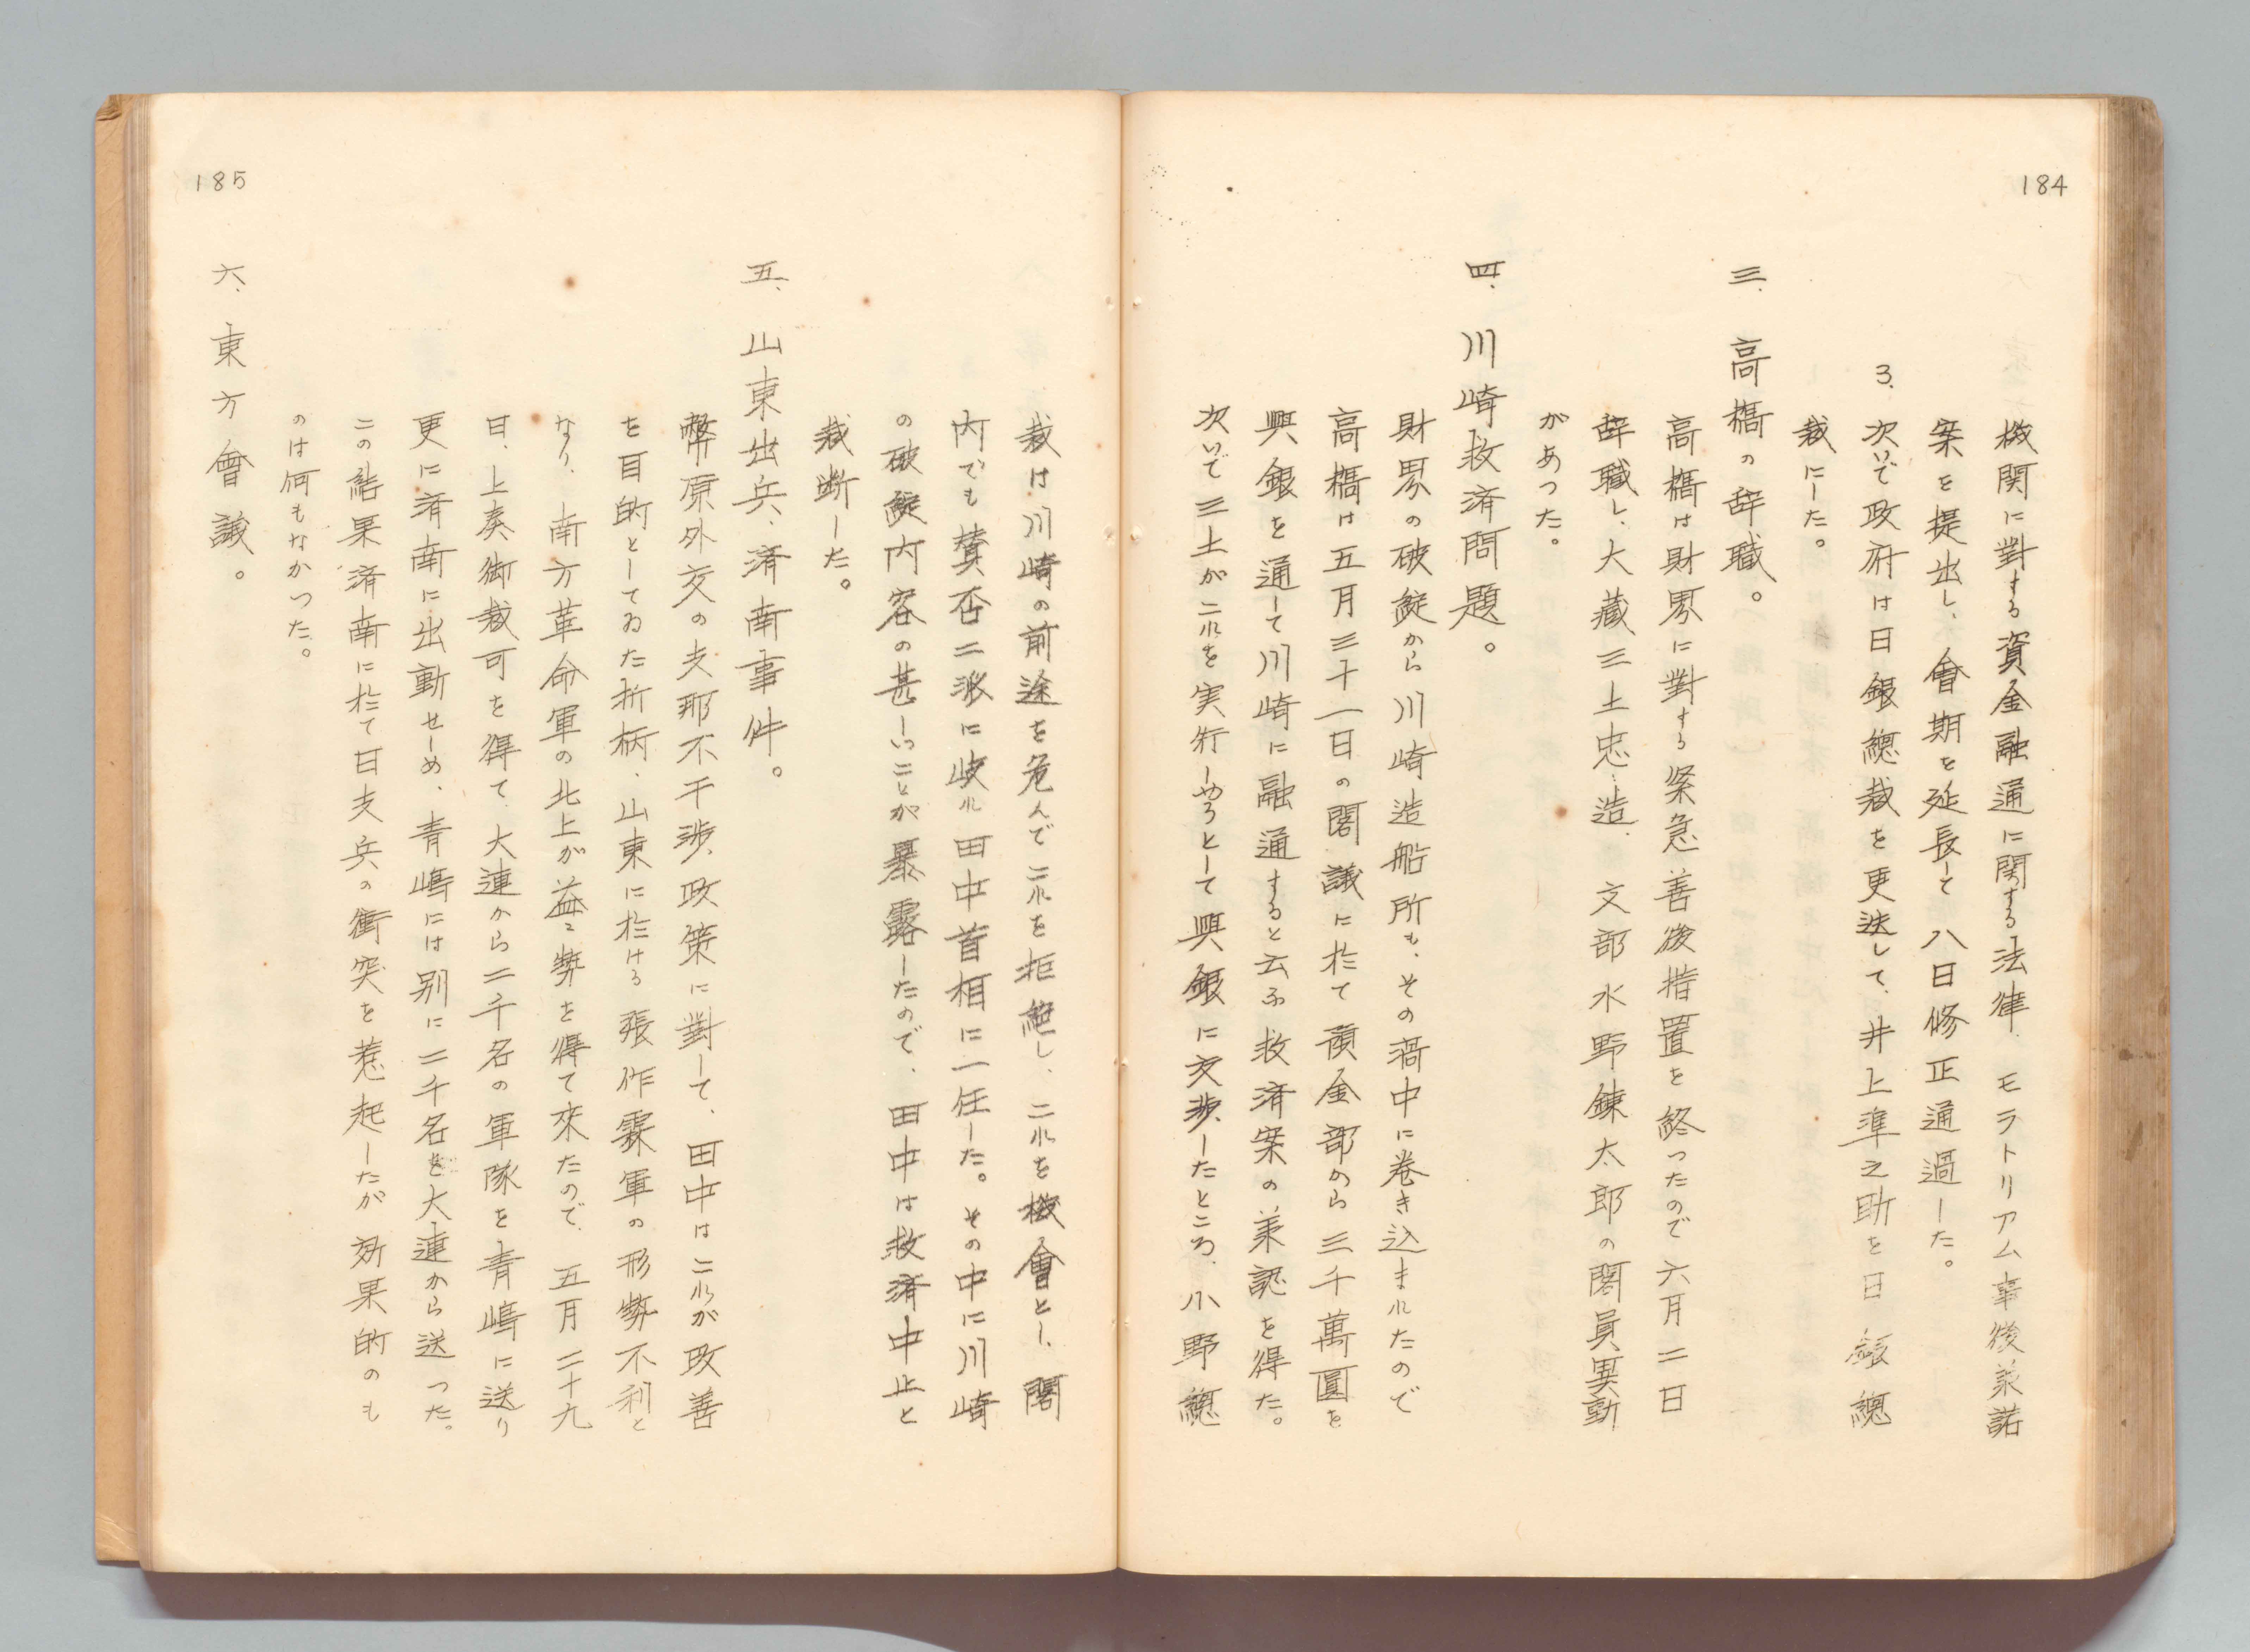 184
機関に對する資金融通に関する法律、モラトリアム事後承諾
案を提出し、會期を延長して八日修正通過した。
3. 次いで政府は日銀總裁を更迭して、井上準之助を日銀總
裁にした。
三、高橋の辞職。
高橋は財界に對する緊急善後措置を終ったので六月二日
辞職し、大藏三土忠造、文部水野錬太郎の閣員異動
があった。
四、川崎救済問題。
財界の破綻から川崎造船所も、その渦中に巻き込まれたので
高橋は五月三十一日の閣議に於て預金部から三千萬圓を
興銀を通して川崎に融通すると云ふ救済案の承認を得た。
次いで三土がこれを実行しやうとして興銀に交渉したところ、小野總
裁は川崎の前途を危んでこれを拒絶し、これを機會とし、閣
内でも賛否二派に岐れ田中首相に一任した。その中に川崎
の破綻内容の甚しいことが暴露したので、田中は救済中止と
裁断した。
五、山東出兵、済南事件。
幣原外交の支那不干渉政策に對して、田中はこれが改善
を目的としてゐた折柄、山東に於ける張作霖軍の形勢不利と
なり、南方革命軍の北上が益々勢を得て来たので、五月二十九
日、上奏御裁可を得て、大連から二千名の軍隊を青嶋に送り
更に済南に出動せしめ、青嶋には別に二千名を大連から送った。
この結果済南に於て日支兵の衝突を惹起したが効果的のも
のは何もなかつた。
六、東方會議。
185